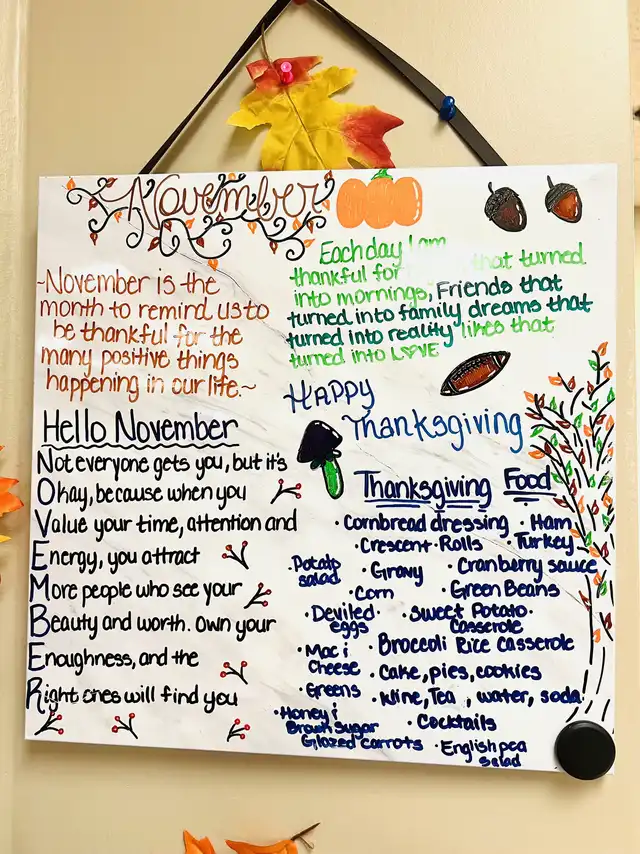 November
~November is the
month to remind us to
be thankful for the
many positive things
happening in our life.~
Hello November
Not everyone gets you, but it's
Okay, because when you
Value your time, attention and
Energy, you attract
More people who see your
Beauty and worth. Own your
Enoughness, and the
Right ones will find you
Each day I am
thankful for that turned
into mornings, Friends that
turned into family dreams that
turned into reality likes that
turned into LOVE
HAPPY
Thanksgiving
Thanksgiving Food
• Cornbread dressing • Ham
• Crescent Rolls • Turkey
• Potato salad
• Gravy • Cranberry sauce
• Corn • Green Beans
• Deviled eggs
• Sweet Potato Casserole
• Mac & Cheese
• Broccoli Rice Casserole
• Cake, pies, cookies
• Greens
• Wine, Tea, water, soda
• Honey & Brown Sugar Glazed Carrots
• Cocktails
• English pea salad